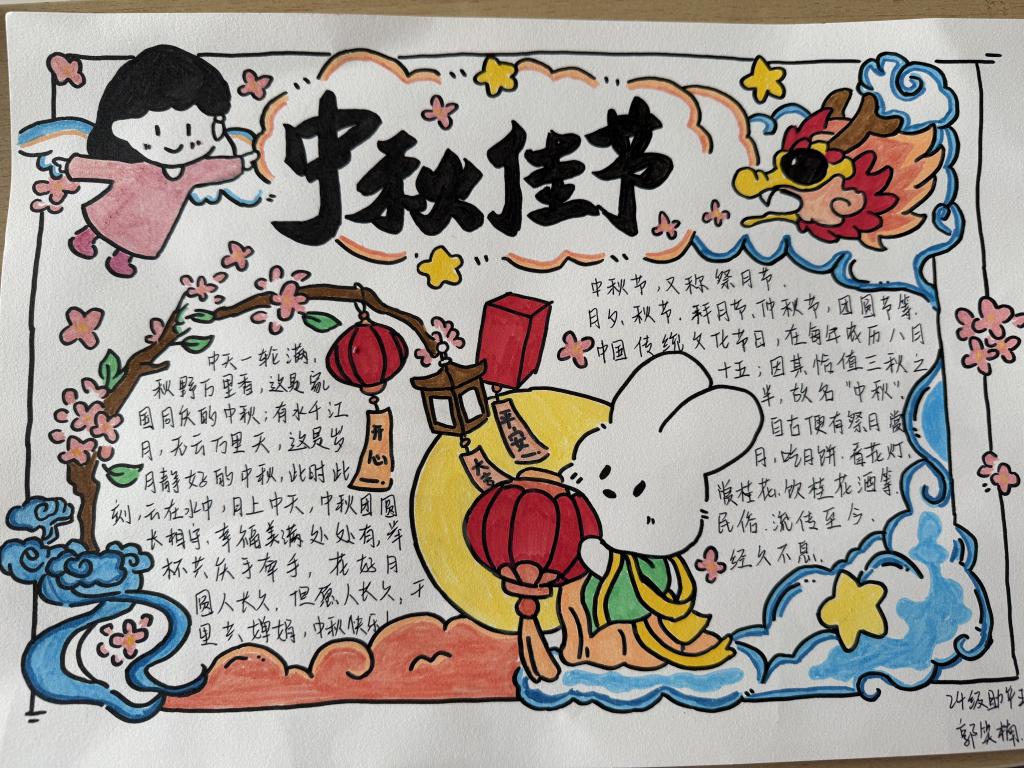 中秋佳节
中秋节,又称祭月节、
月夕、秋节、拜月节、仲秋节,团圆节等.
中国传统文化节日,在每年农历八月
十五;因其恰值三秋之
半,故名“中秋”.
自古便有祭月赏
月,吃月饼、看花灯、
赏桂花、饮桂花酒等
民俗、流传至今、
经久不息.
中天一轮满,
秋野万里香,这是家
国同庆的中秋;有水千江
月,无云万里天,这是岁
月静好的中秋,此时此
刻,云在水中,月上中天,中秋团圆
长相守、幸福美满处处有,举
杯共庆手牵手,花好月
圆人长久,但愿人长久,千
里共婵娟,中秋快乐!
开心
平安
大吉
24级助产
郭笑楠